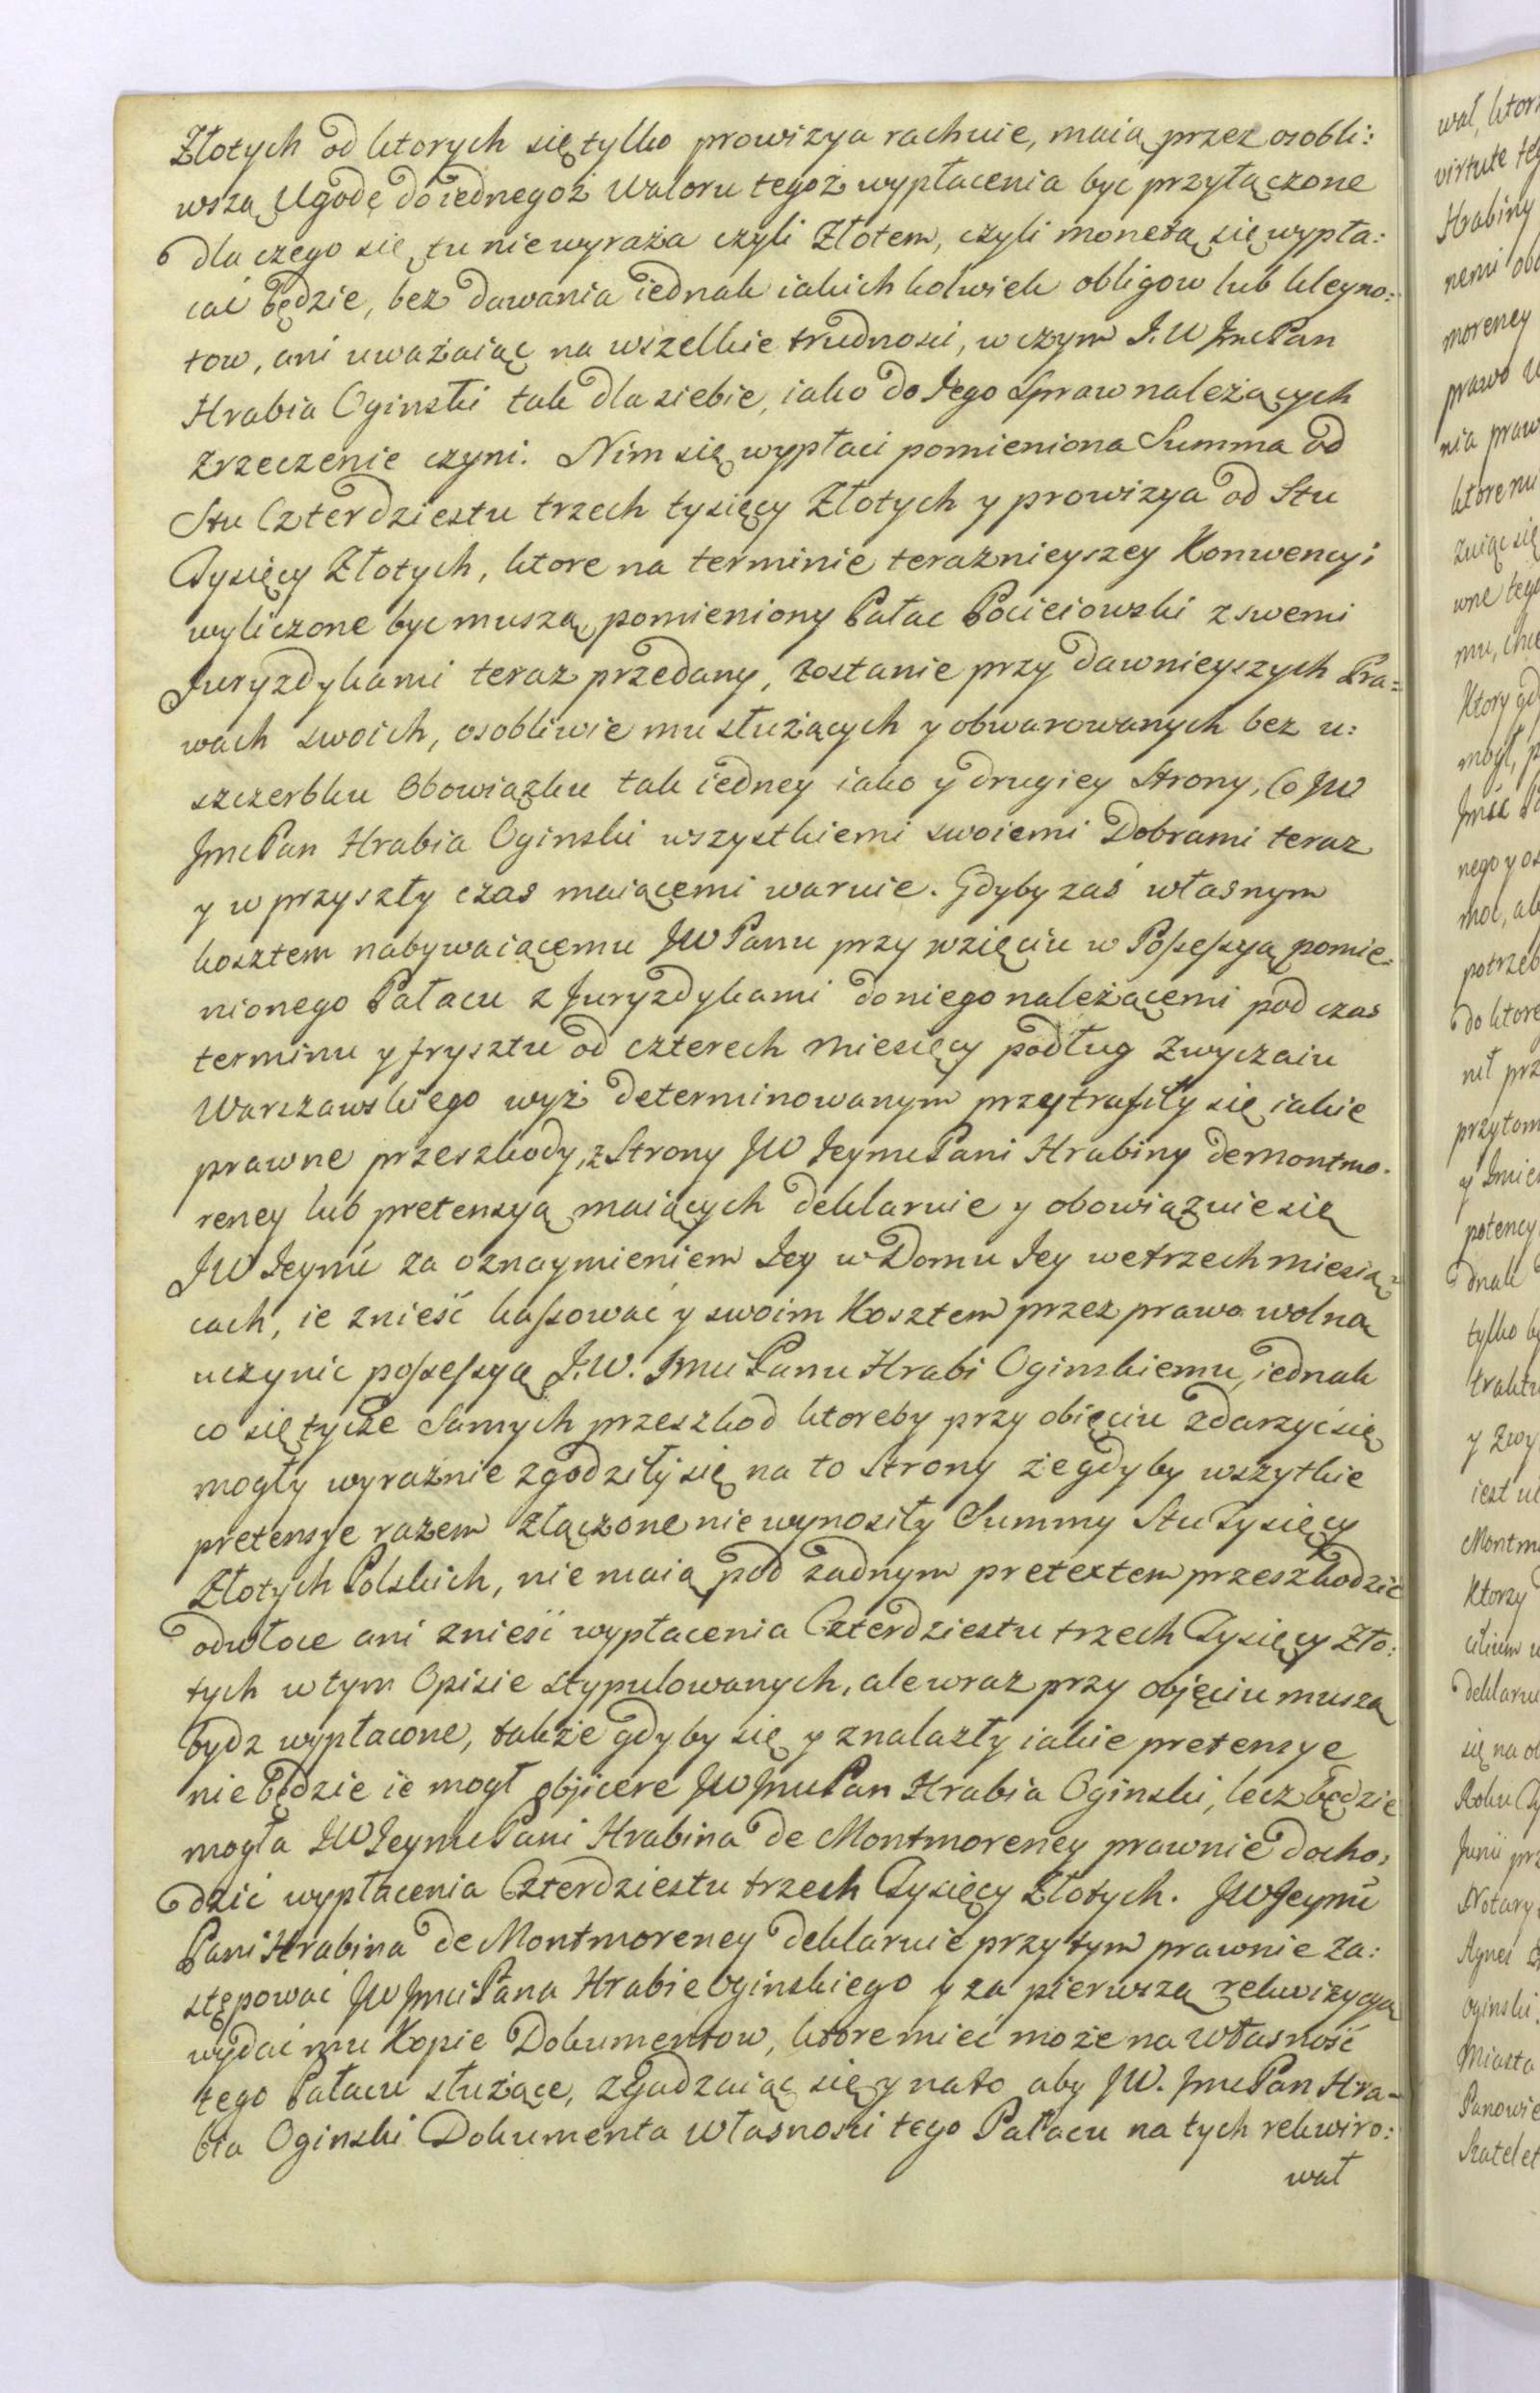 Złotych od ktorych się tylko prowizya rachuie, maią przez osobli:
wszą Ugodę do iednegoż Waloru tegoż wypłacenia byc przyłączone
dla czego się tu nie wyraża czyli Złotem, czyli monetą się wypła:
cać będzie, bez dawania iednak iakichkolwiek obligow lub kleyno:
tow, ani uważaiąc na wszelkie trudności, w czym J.W JmcPan
Hrabia Oginski tak dla siebie, iako do Jego Spraw należących
zrzeczenie czyni. Nim się wypłaci pomieniona Summa od
Stu Czterdziestu trzech tysięcy Złotych y prowizya od Stu
Tysięcy Złotych, ktore na terminie teraznieyszey Konwencyi
wyliczone byc muszą, pomieniony Pałac Pociejowski z swemi
Juryzdykami teraz przedany, zostanie przy dawnieyszych Pra=
wach swoich, osobliwie mu służących y obwarowanych bez u:
szczerbku Obowiązku tak iedney iako y drugiey Strony, Co JW
JmcPan Hrabia Oginski wszystkiemi swoiemi Dobrami teraz
y w przyszły czas maiącemi waruie. Gdyby zaś własnym
kosztem nabywaiącemu JW Panu przy wzięciu w Possessyą pomie:
nionego Pałacu z Juryzdykami do niego należącemi pod czas
terminu y frysztu od czterech Miesięcy podług Zwyczaiu
Warszawskiego wyż determinowanym przytrafiły się iakie
prawne przeszkody, z Strony JW JeymcPani Hrabiny de Montmo.
rency lub pretensyą maiących deklaruie y obowiązuie się
JW Jeymć za oznaymieniem Jey w Domu Jey we trzech miesią=
cach, ie znieść kassować y swoim Kosztem przez prawo wolną
uczynic possessyą J.W. Jmci Panu Hrabi Oginskiemu, iednak
co się tycze Samych przeszkod ktoreby przy obięciu zdarzyć się
mogły wyraźnie zgodziły się na to Strony że gdyby wszytkie
pretensye razem złączone nie wynosiły Summy Stu Tysięcy
Złotych Polskich, nie maią pod żadnym pretextem przeszkodzić
odwłoce ani znieść wypłacenia Czterdziestu trzech Tysięcy Zło:
tych w tym Opisie stypulowanych, ale wraz przy objęciu muszą
bydz wypłacone, także gdyby się y znalazły iakie pretensye
nie będzie ie mogł objicere JW JmcPan Hrabia Oginski, lecz będzie
mogła JW JeymcPani Hrabina de Montmorency prawnie docho:
dzić wypłacenia Czterdziestu trzech Tysięcy Złotych. JW Jeymć
Pani Hrabina de Montmorency deklaruie przytym prawnie za:
stępować JW Jmci Pana Hrabie Oginskiego y za pierwszą rekwizycyą
wydać mu Kopie Dokumentow, ktore mieć może na własność
tego Pałacu służące, zgadzaiąc się y nato aby JW. JmcPan Hra=
bia Oginski Dokumenta własności tego Pałacu na tych rekwiro:
wał
wał, ktor
virtute
Hrabiny
morency
prawo
nia praw
mogł,
potrzeb
tylko
Ktorzy
Notary
Agnes
Oginski
Miasta
Panowie